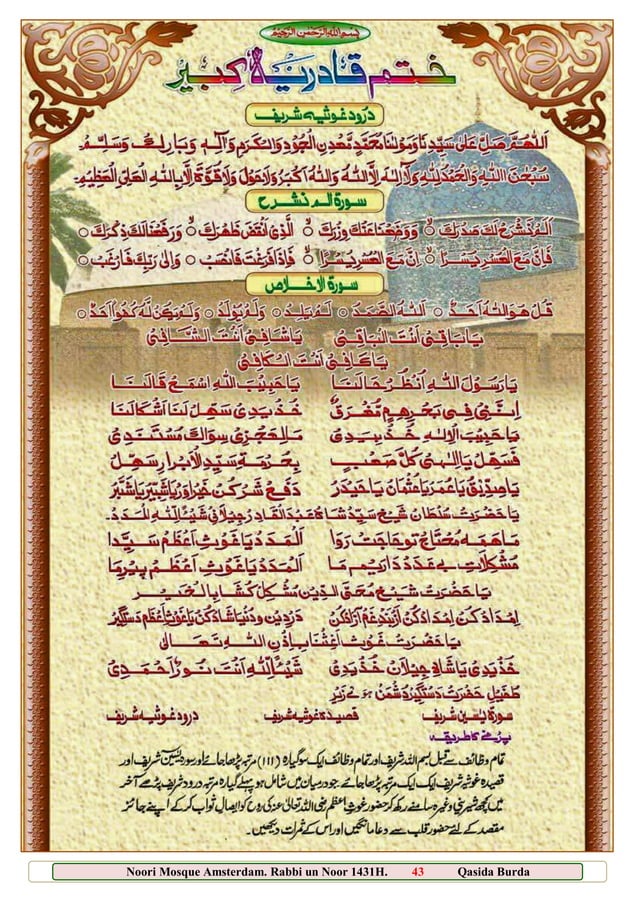 بسم اللہ الرحمٰن الرحیم
ختم قادریہ کبیر
درود غوثیہ شریف
اَللّٰهُمَّ صَلِّ عَلٰى سَيِّدِنَا وَمَوْلٰنَا مُحَمَّدٍ مَّعْدِنِ الْجُوْدِ وَالْكَرَمِ وَآلِهٖ وَبَارِكْ وَسَلِّمْ۔
سُبْحٰنَ اللّٰهِ وَالْحَمْدُ لِلّٰهِ وَلَآ اِلٰهَ اِلَّا اللّٰهُ وَاللّٰهُ اَكْبَرُ وَلَا حَوْلَ وَلَا قُوَّةَ اِلَّا بِاللّٰهِ الْعَلِيِّ الْعَظِيْمِ۔
سورۃ الم نشرح
اَلَمْ نَشْرَحْ لَكَ صَدْرَكَ ۙ وَوَضَعْنَا عَنْكَ وِزْرَكَ ۙ الَّذِيْٓ اَنْقَضَ ظَهْرَكَ ۙ وَرَفَعْنَا لَكَ ذِكْرَكَ ○
فَاِنَّ مَعَ الْعُسْرِ يُسْرًا ۙ اِنَّ مَعَ الْعُسْرِ يُسْرًا ○ فَاِذَا فَرَغْتَ فَانْصَبْ ۙ وَاِلٰى رَبِّكَ فَارْغَبْ ○
سورۃ الاخلاص
قُلْ هُوَ اللّٰهُ اَحَدٌ ○ اَللّٰهُ الصَّمَدُ ○ لَمْ يَلِدْ ۙ وَلَمْ يُوْلَدْ ○ وَلَمْ يَكُنْ لَّهٗ كُفُوًا اَحَدٌ ○
يَا بَاقِيْ اَنْتَ الْبَاقِيْ يَا شَافِيْ اَنْتَ الشَّافِيْ
يَا كَافِيْ اَنْتَ الْكَافِيْ
يَا رَسُوْلَ اللّٰهِ اُنْظُرْ حَالَنَا يَا حَبِيْبَ اللّٰهِ اِسْمَعْ قَالَنَا
اِنَّنِيْ فِيْ بَحْرِ هَمٍّ مُّغْرَقٌ خُذْ يَدِيْ سَهِّلْ لَنَا اَشْكَالَنَا
يَا حَبِيْبَ الْاِلٰهِ خُذْ بِيَدِيْ مَا لِعَجْزِيْ سِوَاكَ مُسْتَنَدِيْ
فَسَهِّلْ يَا اِلٰهِيْ كُلَّ صَعْبٍ بِحُرْمَةِ سَيِّدِ الْاَبْرَارِ سَهِّلْ
يَا صِدِّيْقُ يَا عُمَرُ يَا عُثْمَانُ يَا حَيْدَرُ دفع شر کن خیر آور یا شبیر یا شبر
یا حضرت سلطان شیخ سید شاہ عبد القادر جیلانی شیئا للہ المدد۔
ما ہمہ محتاج تو حاجت روا المدد یا غوث اعظم سیدا
مشکلات بے عدد داریم ما المدد یا غوث اعظم پیر ما
یا حضرت شیخ محی الدین مشکل کشا بالخیر
امداد کن امداد کن از بند غم آزاد کن در دین و دنیا شاد کن یا غوث اعظم دستگیر
یا حضرت غوث اغثنا باذن اللہ تعالیٰ
خذ یدی یا شاہ جیلان خذ یدی شیئا للہ انت نور احمدی
طفیل حضرت دستگیر دشمن ہوئے زیر
سورۃ یٰسین شریف قصیدہ غوثیہ شریف درود غوثیہ شریف
پڑھنے کا طریقہ
تمام وظائف سے قبل بسم اللہ شریف اور تمام وظائف ایک سو گیارہ (۱۱۱) مرتبہ پڑھا جائے اور سورہ یٰسین شریف اور
قصیدہ غوثیہ شریف ایک ایک مرتبہ پڑھا جائے جو درمیان میں شامل ہو پہلے گیارہ مرتبہ درود شریف پڑھے آخر
میں کچھ شیرینی وغیرہ سامنے رکھ کر حضور غوث اعظم رضی اللہ تعالیٰ عنہ کی روح کو ایصال ثواب کر کے اپنے جائز
مقصد کے لئے حضور قلب سے دعا مانگیں اور اس کے ثمرات دیکھیں۔
Noori Mosque Amsterdam. Rabbi un Noor 1431H. 43 Qasida Burda